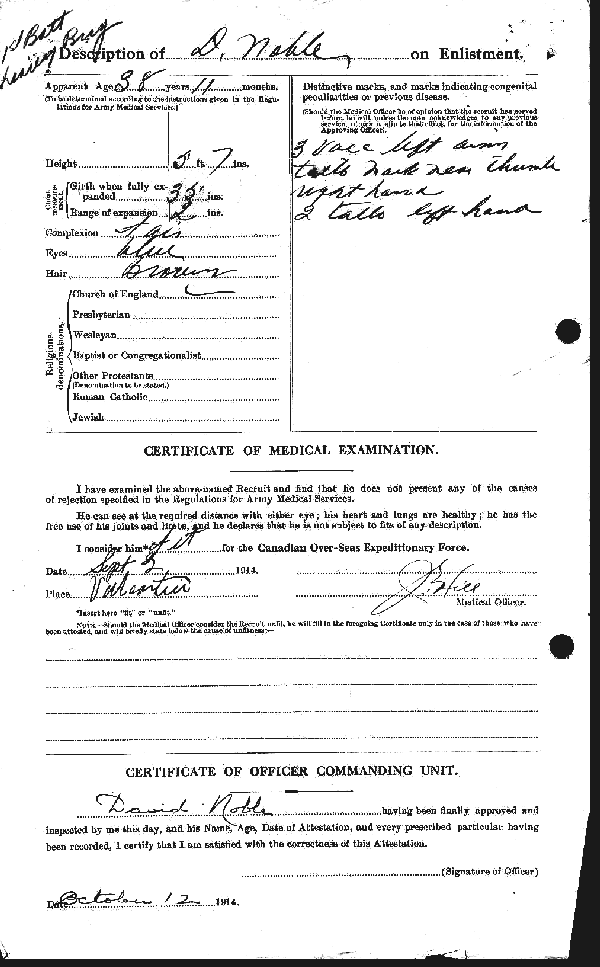 1st Batt
Description of D. Noble on Enlistment.
Apparent Age 38 years 11 months.
(To be determined according to the instructions given in the Regulations for Army Medical Services.)
Height 5 ft 7 ins.
Chest measurement.
Girth when fully expanded 35 ins.
Range of expansion 2 ins.
Complexion Fair
Eyes Blue
Hair Brown
Religious denominations.
Church of England
Presbyterian
Wesleyan
Baptist or Congregationalist
Other Protestants
(Denomination to be stated.)
Roman Catholic
Jewish
Distinctive marks, and marks indicating congenital
peculiarities or previous disease.
(Should the Medical Officer be of opinion that the recruit has served
before, he will, unless the man acknowledges to any previous
service, attach a slip to that effect, for the information of the
Approving Officer).
3 vacc left arm
tatto mark near thumb
right hand
2 tatto left hand
CERTIFICATE OF MEDICAL EXAMINATION.
I have examined the above-named Recruit and find that he does not present any of the causes
of rejection specified in the Regulations for Army Medical Services.
He can see at the required distance with either eye; his heart and lungs are healthy; he has the
free use of his joints and limbs, and he declares that he is not subject to fits of any description.
I consider him* fit for the Canadian Over-Seas Expeditionary Force.
Date Sept 2 1914.
Place Valcartier
J. Hill
Medical Officer.
*Insert here "fit" or "unfit."
NOTE.—Should the Medical Officer consider the Recruit unfit, he will fill in the foregoing Certificate only in the case of those who have
been attested, and will briefly state below the cause of unfitness:—
CERTIFICATE OF OFFICER COMMANDING UNIT.
David Noble having been finally approved and
inspected by me this day, and his Name, Age, Date of Attestation, and every prescribed particular having
been recorded, I certify that I am satisfied with the correctness of this Attestation.
(Signature of Officer)
Date October 12 1914.